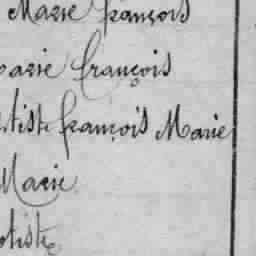 Marie françois
Marie François
tiste françois Marie
Marie
tiste